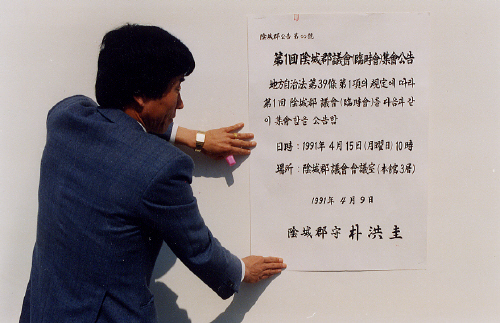 陰城郡公告 第 號
第1回 陰城郡議會(臨時會)集會公告
地方自治法 第39條 第1項의 規定에 따라
第1回 陰城郡 議會(臨時會)를 다음과 같
이 集會함을 公告함
日時 : 1991年 4月 15日(月曜日) 10時
場所 : 陰城郡議會 會議室(本館 3層)
1991年 4月 9日
陰城郡守 朴洪圭